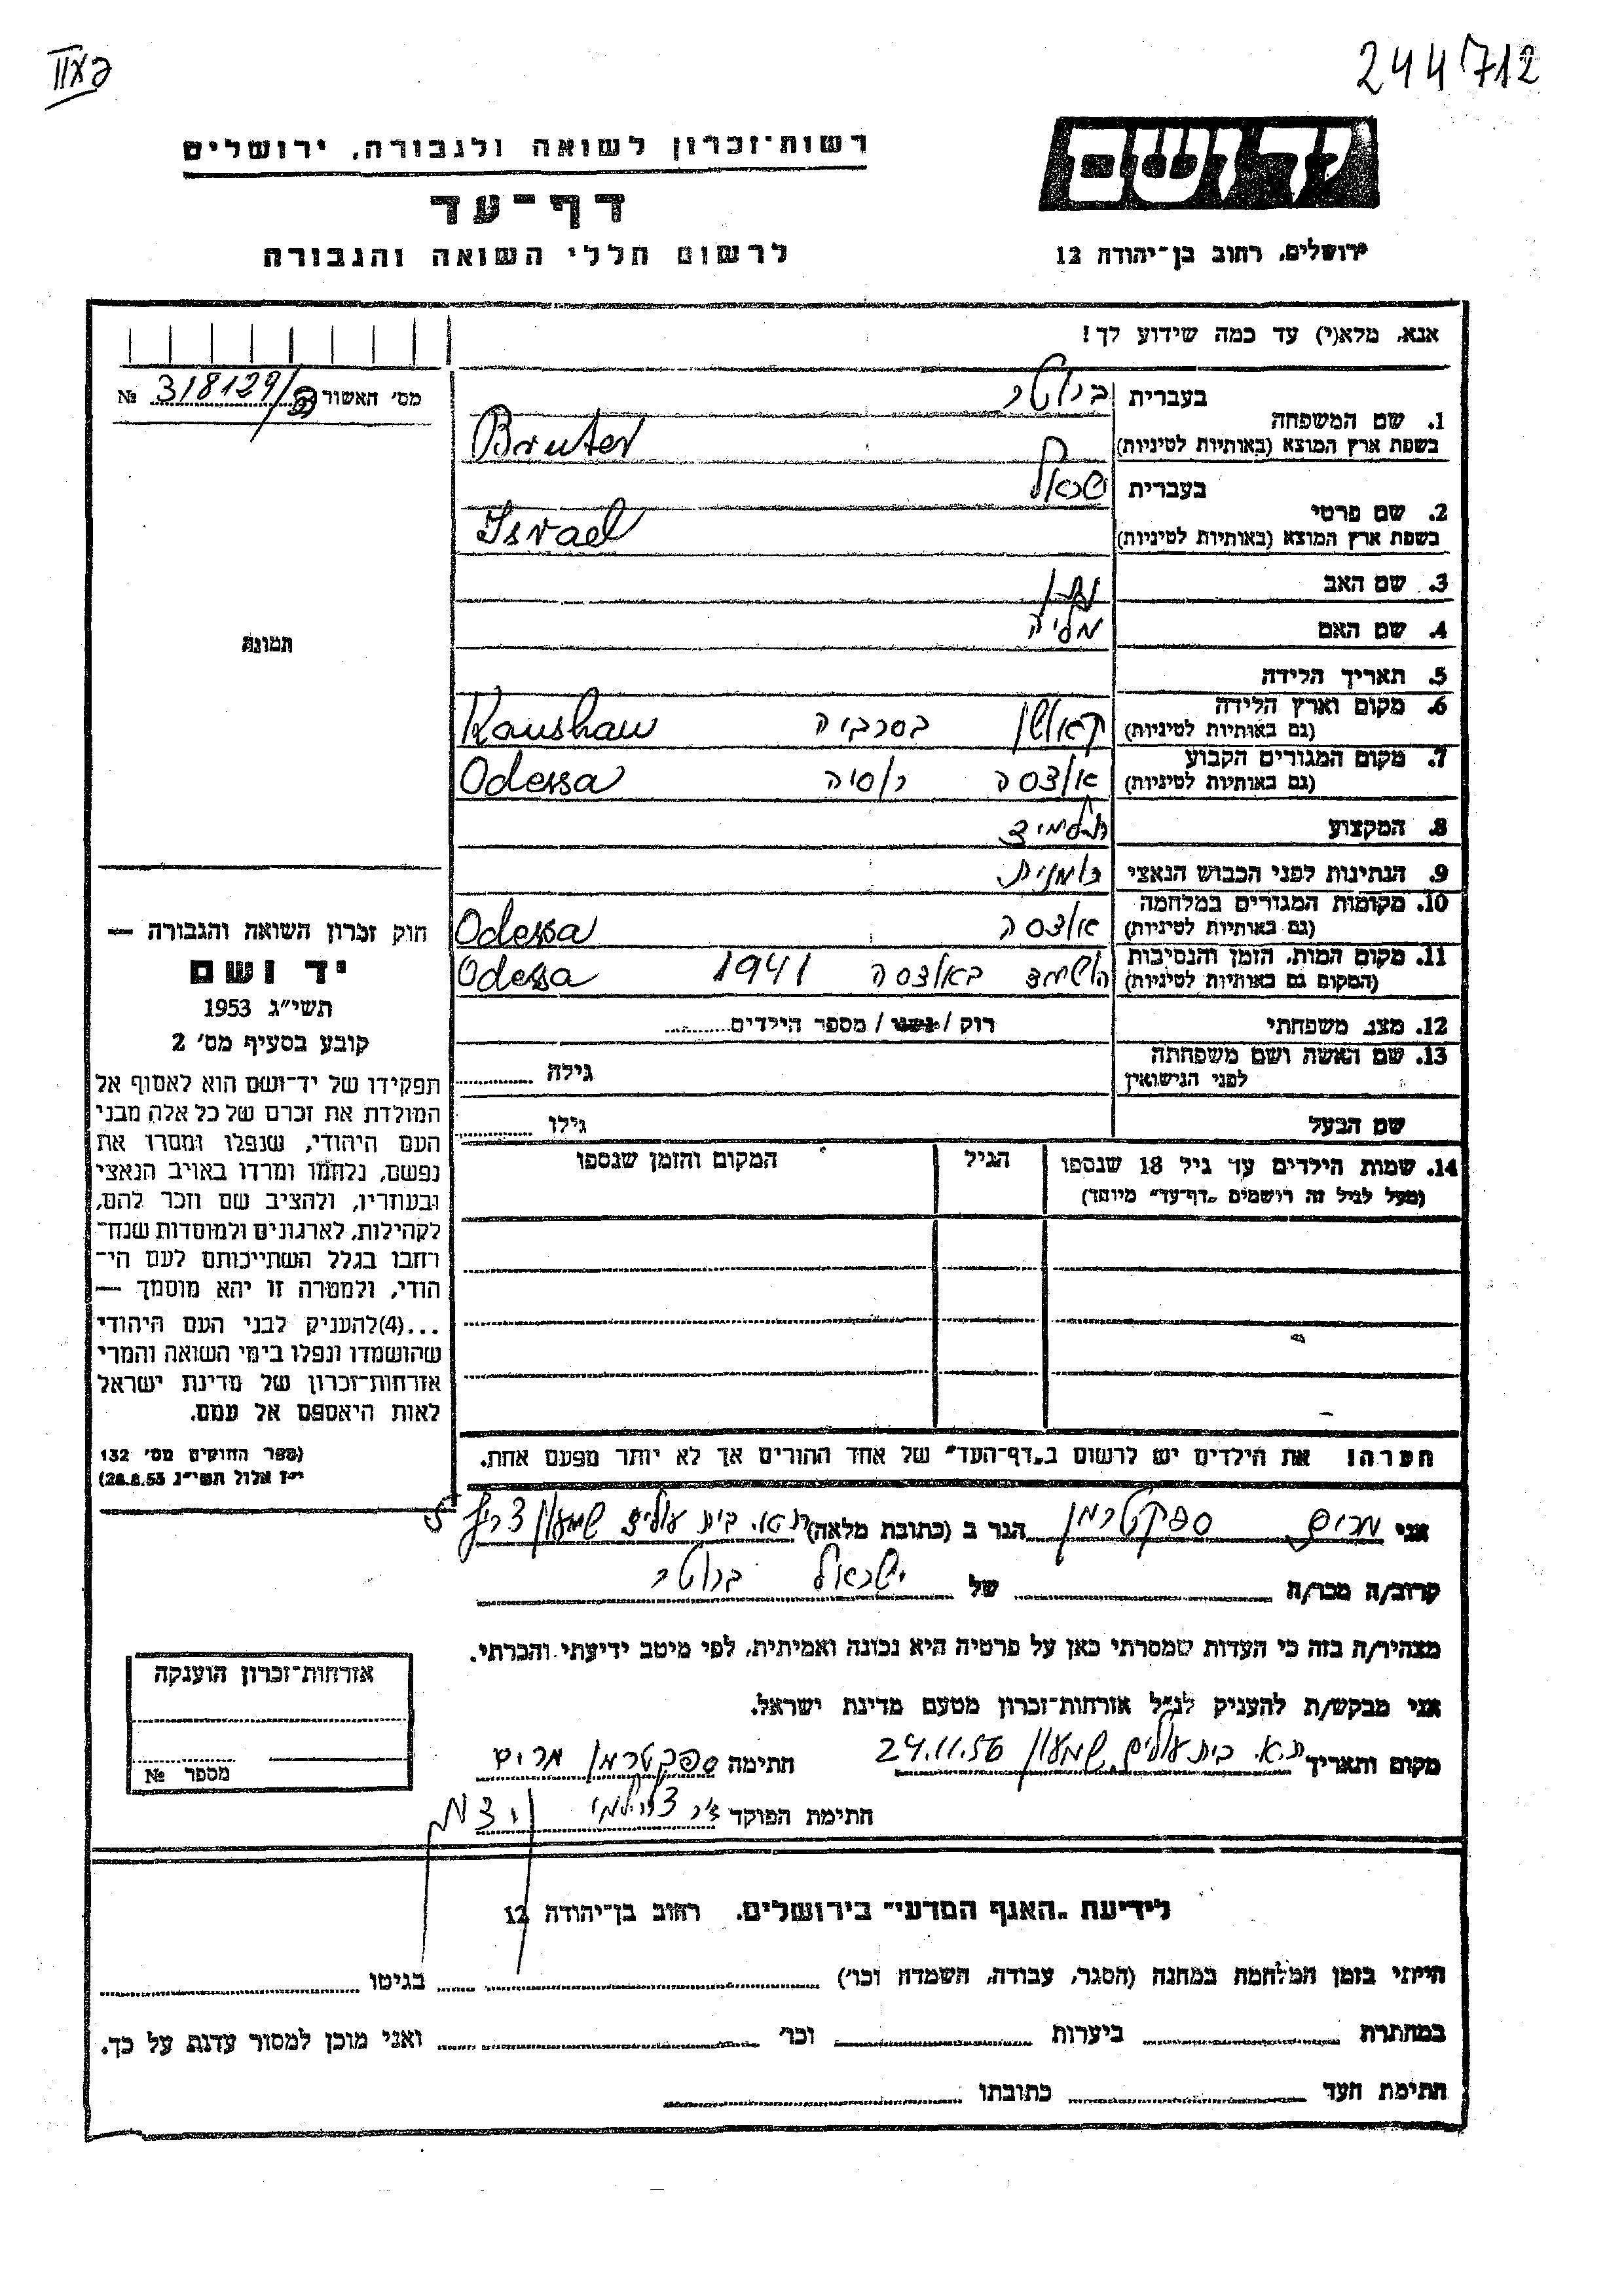 244712
רשות־זכרון לשואה ולגבורה, ירושלים
יד ושם
דף־עד
לרשום חללי השואה והגבורה
ירושלים, רחוב בן־יהודה 12
אנא, מלא(י) עד כמה שידוע לך!
מס׳ האשור 318129/ №
1. שם המשפחה
בעברית ברוטר
בשפת ארץ המוצא (באותיות לטיניות) Bruter
2. שם פרטי
בעברית ישראל
בשפת ארץ המוצא (באותיות לטיניות) Israel
3. שם האב
4. שם האם מליה
5. תאריך הלידה
6. מקום וארץ הלידה קאושן בסרביה Kaushan
(גם באותיות לטיניות)
7. מקום המגורים הקבוע אודסה רוסיה Odessa
(גם באותיות לטיניות)
8. המקצוע תלמיד
9. הנתינות לפני הכבוש הנאצי רומנית
10. מקומות המגורים במלחמה אודסה Odessa
(גם באותיות לטיניות)
11. מקום המות, הזמן והנסיבות הושמד באודסה 1941 Odessa
(המקום גם באותיות לטיניות)
12. מצב משפחתי רוק / נשוי / מספר הילדים
13. שם האשה ושם משפחתה גילה
לפני הנישואין
שם הבעל גילו
14. שמות הילדים עד גיל 18 שנספו הגיל המקום והזמן שנספו
(מעל לגיל זה רושמים „דף־עד״ מיוחד)
תמונה
חוק זכרון השואה והגבורה —
יד ושם
תשי״ג 1953
קובע בסעיף מס׳ 2
תפקידו של יד־ושם הוא לאסוף אל
המולדת את זכרם של כל אלה מבני
העם היהודי, שנפלו ומסרו את
נפשם, נלחמו ומרדו באויב הנאצי
ובעוזריו, ולהציב שם וזכר להם,
לקהילות, לארגונים ולמוסדות שנח־
רחבו בגלל השתייכותם לעם הי־
הודי, ולמטרה זו יהא מוסמך —
...(4)להעניק לבני העם היהודי
שהושמדו ונפלו בימי השואה והמרי
אזרחות־זכרון של מדינת ישראל
לאות היאספם אל עמם.
(ספר החוקים מס׳ 132
י״ז אלול תשי״ג 28.8.53)
הערה! את הילדים יש לרשום ב„דף־העד״ של אחד ההורים אך לא יותר מפעם אחת.
אני מרים ספקטרמן הגר ב (כתובת מלאה) ת.א. בית עולים שמעון צריף 5
קרוב/ה מכר/ה של ישראל ברוטר
מצהיר/ה בזה כי העדות שמסרתי כאן על פרטיה היא נכונה ואמיתית, לפי מיטב ידיעתי והכרתי.
אני מבקש/ת להעניק לנ״ל אזרחות־זכרון מטעם מדינת ישראל.
מקום ותאריך ת.א. בית עולים שמעון 24.11.56 חתימה ספקטרמן מרים
חתימת הפוקד
אזרחות־זכרון הוענקה
מספר №
לידיעת „האגף המדעי״ בירושלים, רחוב בן־יהודה 12
הייתי בזמן המלחמה במחנה (הסגר, עבודה, השמדה וכו׳) בגיטו
במחתרת ביערות וכו׳ ואני מוכן למסור עדות על כך.
חתימת העד כתובתו